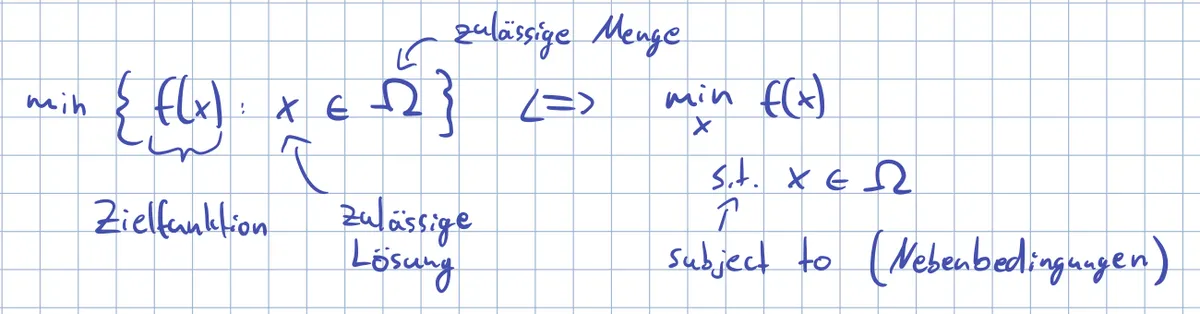 zulässige Menge
min { f(x) : x ∈ Ω } <=> min f(x)
x
s.t. x ∈ Ω
Zielfunktion zulässige Lösung
subject to (Nebenbedingungen)